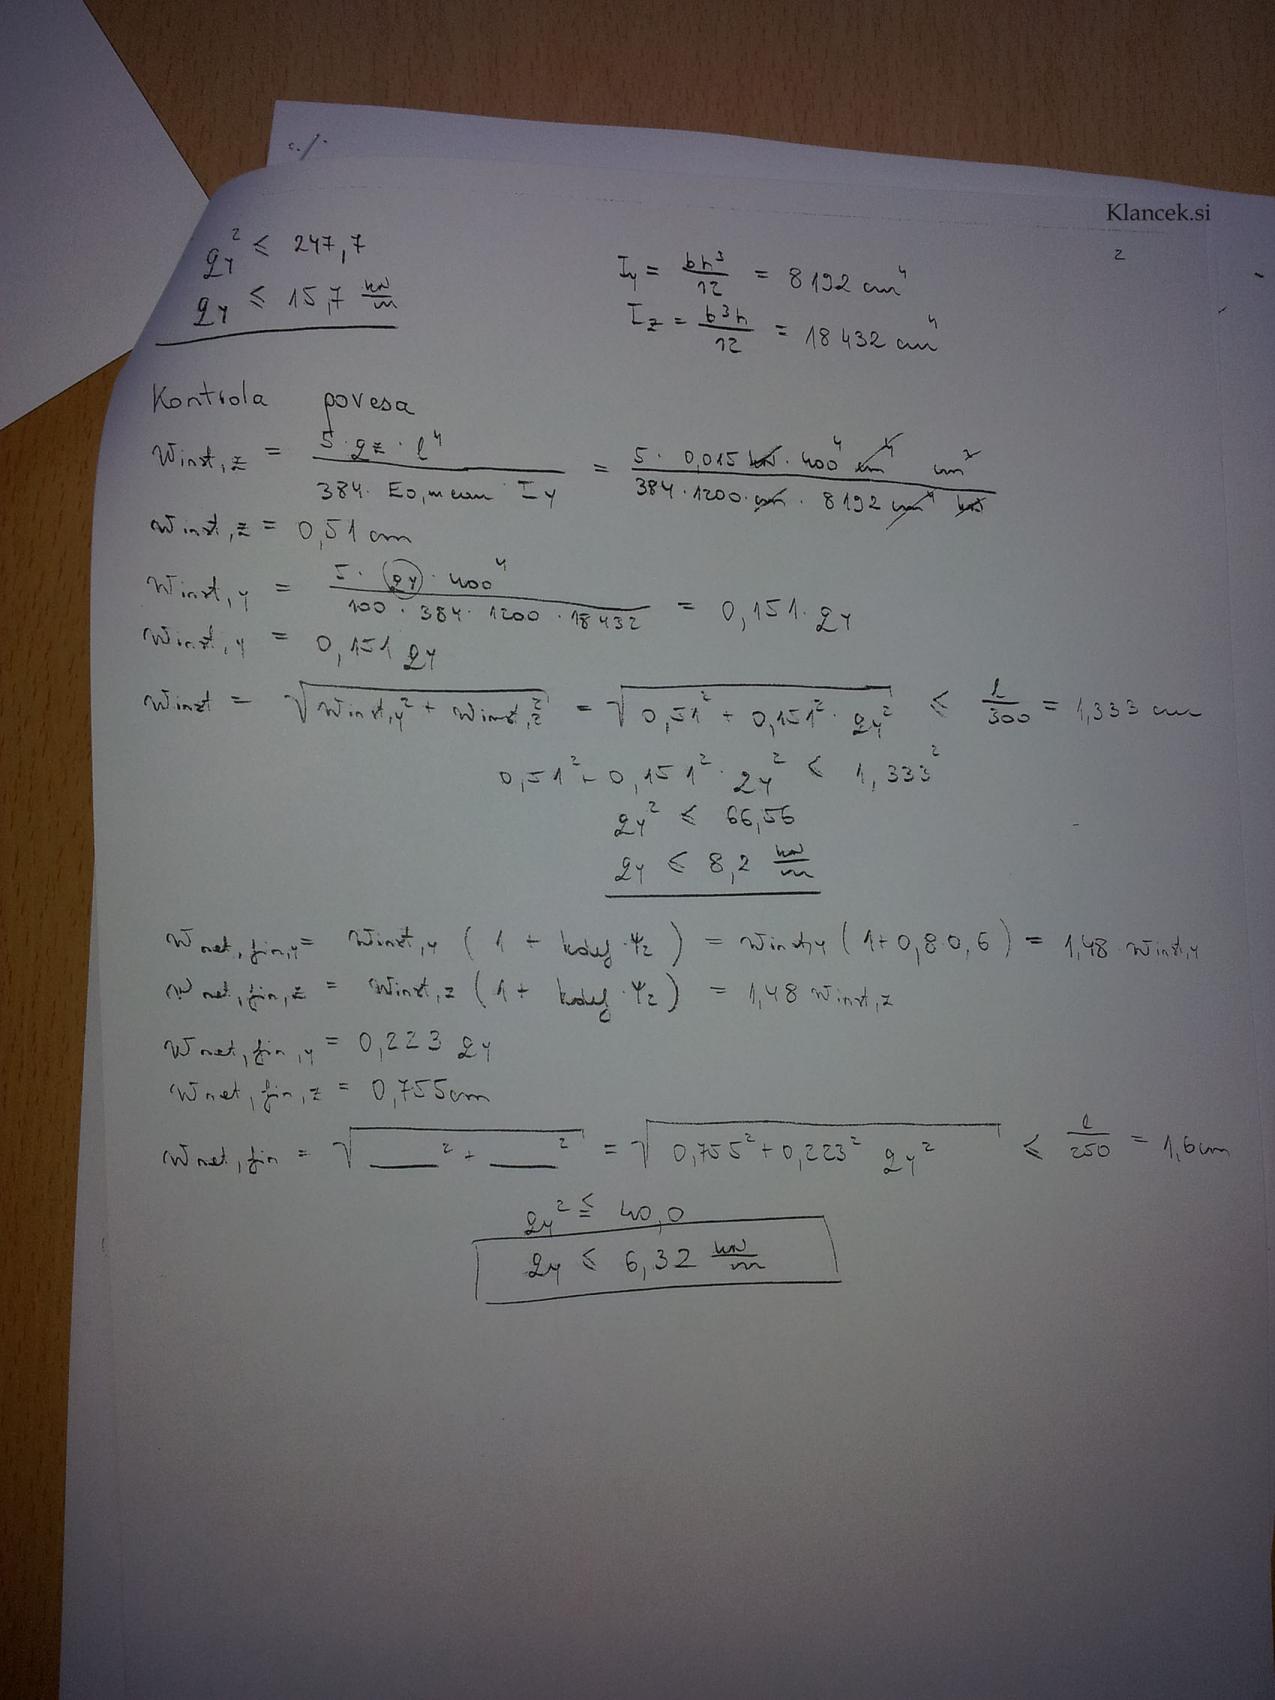 Klancek.si
2
qy² ≤ 247,7
qy ≤ 15,7 kN/m
Iy = bh³/12 = 8192 cm⁴
Iz = b³h/12 = 18432 cm⁴
Kontrola povesa
Winst,z = 5·qz·l⁴ / 384·E0,mean Iy = 5·0,015 kN·400⁴ cm⁴ cm² / 384·1200·cm·8192 cm⁴ kN
Winst,z = 0,51 cm
Winst,y = 5·qy·400⁴ / 100·384·1200·18432 = 0,151·qy
Winst,y = 0,151 qy
Winst = √(Winst,y² + Winst,z²) = √(0,51² + 0,151²·qy²) ≤ l/300 = 1,333 cm
0,51² + 0,151²·qy² ≤ 1,333²
qy² ≤ 66,56
qy ≤ 8,2 kN/m
Wnet,fin,y = Winst,y (1 + kdef·Ψ2) = Winst,y (1+0,8·0,6) = 1,48 Winst,y
Wnet,fin,z = Winst,z (1 + kdef·Ψ2) = 1,48 Winst,z
Wnet,fin,y = 0,223 qy
Wnet,fin,z = 0,755cm
Wnet,fin = √(___² + ___²) = √(0,755² + 0,223² qy²) ≤ l/250 = 1,6cm
qy² ≤ 40,0
qy ≤ 6,32 kN/m